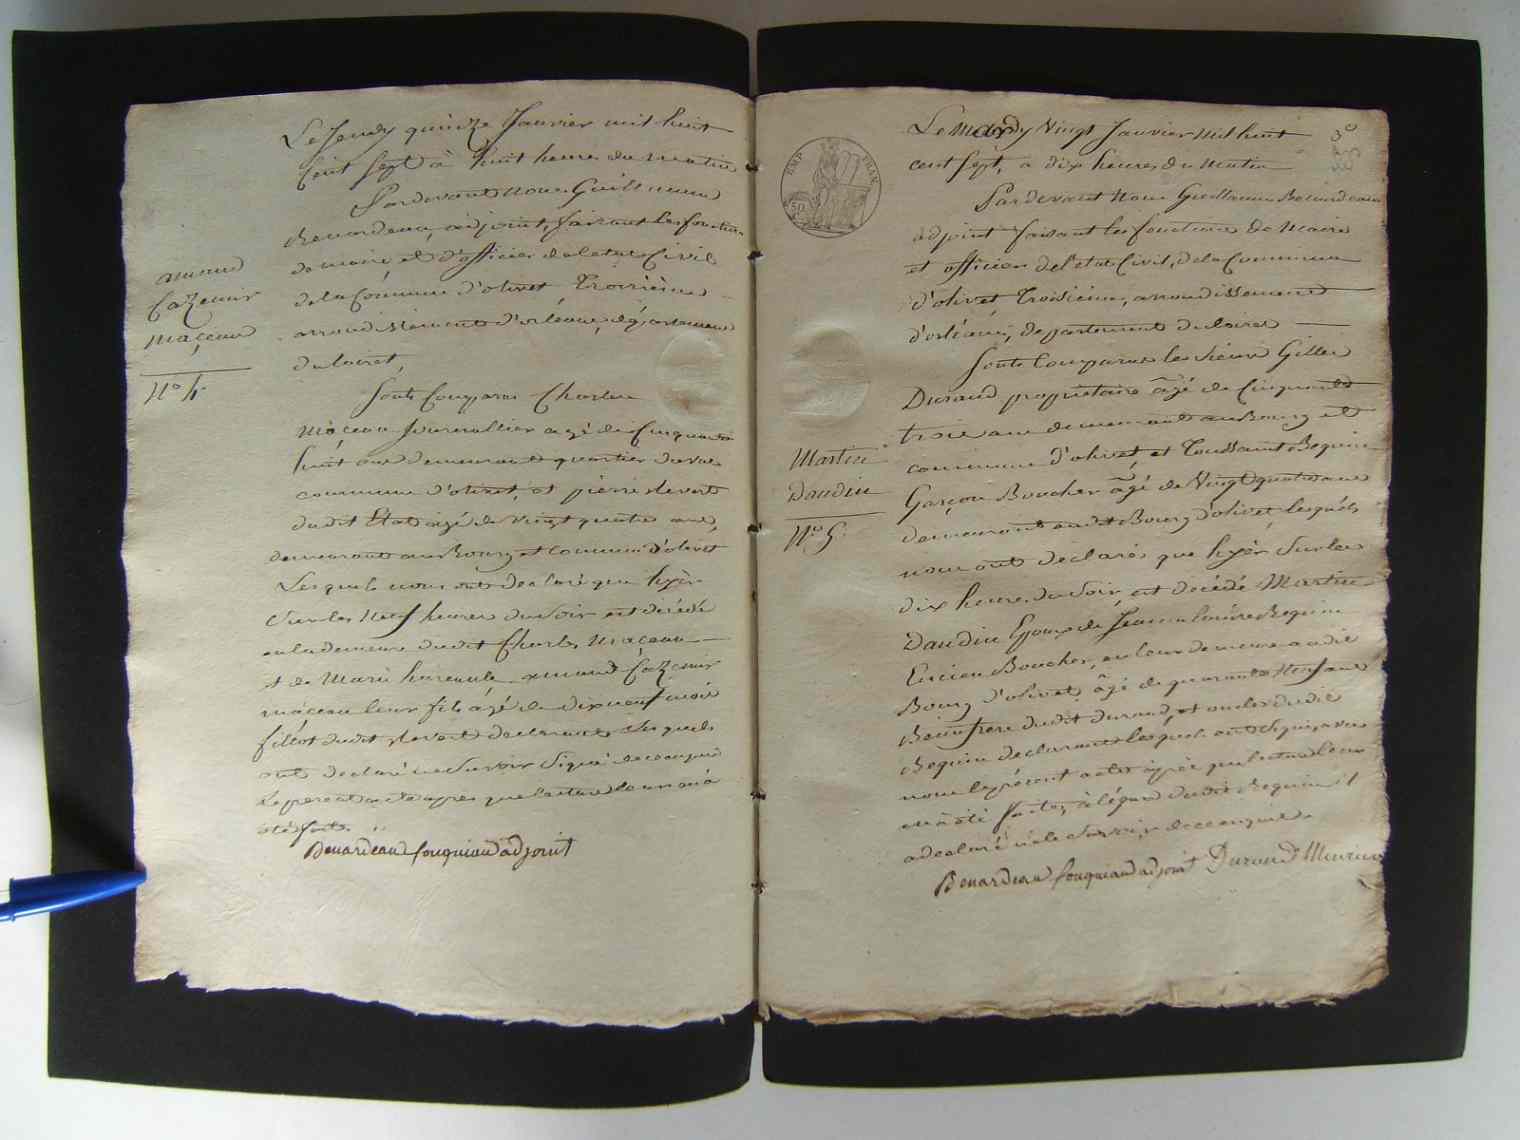 Le Jeudy quinze Janvier mil huit
Cent sept à huit heures du matin
Pardevant Nous Guillaume
Benardeau, adjoint, faisant les fonctions
de maire, et d'officier de letat Civil
de la Commune d'olivet Troisième
arrondissement d'orleans, départemens
du loiret,
Sonts Comparus Charles
Maçeau Journallier agé de Cinquante
huit ans demeurant quartier du val
commune d'olivet, et pierre levert
dudit Etat agé de vingt quatre ans,
demeurant au Bourg et commune d'olivet
Lesquels nous ont déclaré que hyèr
Sur les Neuf heures du Soir est décédé
en la demeure dudit Charles Maçeau
et de Marie amand Cazemir
maceau leur fils agé de dix neuf mois
fillot dudit levert declarants lesquels
ont declaré ne Savoir Signé de ce enquis
Le present acte apres que lecture leur en à
été faite
Benardeau fouquiau adjoint
amand
Cazemir
maçeau
N° 4.
EMP. FRAN.
50
3°
Le Mardy Vingt Janvier Mil huit
cent sept, a dix heures du Matin
Pardevant Nous Guillaume Benardeau
adjoint faisant les fonctions de Maire
et officier de l'etat Civil, de la Commune
d'olivet, Troisieme, arrondissement
d'orléans, departement du loiret
Sonts Comparus les Sieurs Gilles
Durand propriétaire âgé de Cinquante
trois ans demeurant au Bourg et
commune d'olivet, et Toussaint Bequin
Garçon Boucher âgé de Vingt quatre ans
demeurant audit Bourg d'olivet, lesquéls
nous ont déclarés que hyèr Sur les
dix heures du Soir, est décédé Martin
Daudin Epoux de Bequin
Encien Boucher, en leur demeure audit
Bourg d'olivet âgé de quarante Neuf ans
Beaufrere dudit durand, et oncles dudit
Bequin declarants lesquels ont Signé avec
nous le présent acte après que lecture leur
en à été faite, à légard dudit Bequin il
a declaré ne le Savoir, de ce enquis.
Benardeau fouquiau adjoint Durand
Martin
Daudin
N° 5.